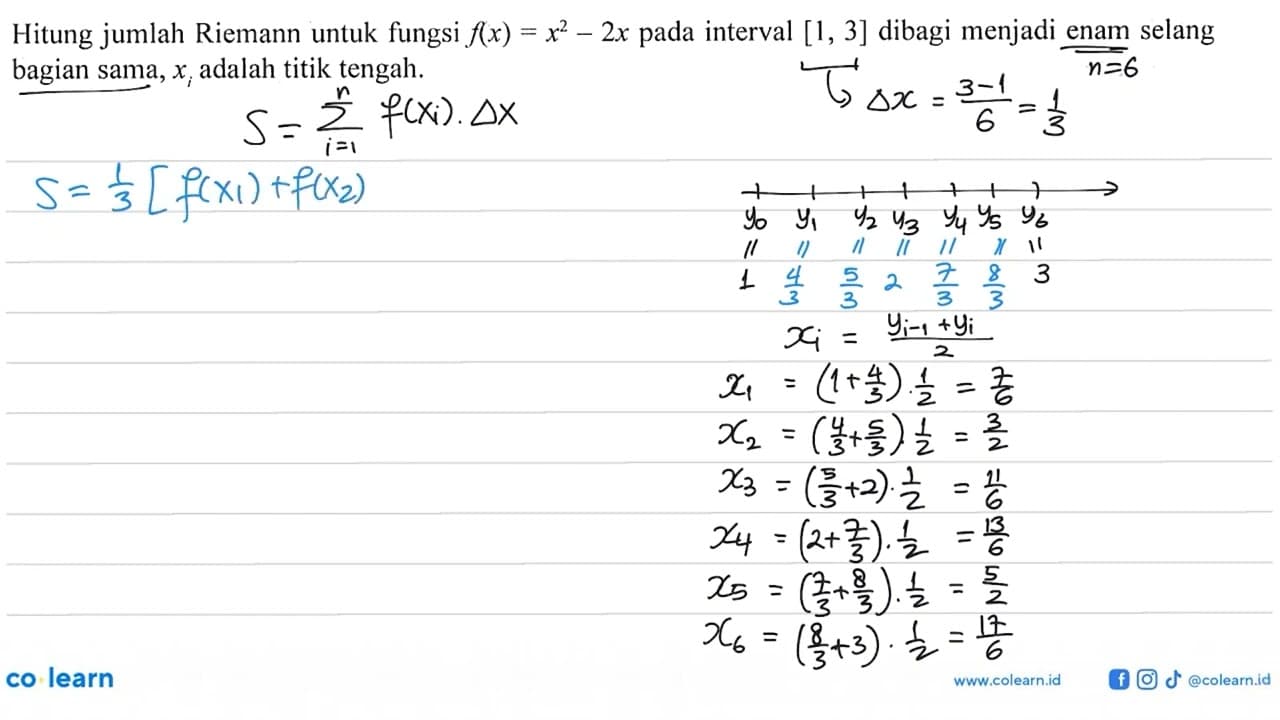 Hitung jumlah Riemann untuk fungsi f(x) = x² – 2x pada interval [1, 3] dibagi menjadi enam selang
bagian sama, xᵢ adalah titik tengah.
n=6
Δx = (3-1)/6 = 1/3
S = Σ_{i=1}^{n} f(xᵢ). Δx
S = 1/3 [ f(x₁) + f(x₂)
y₀ y₁ y₂ y₃ y₄ y₅ y₆
|| || || || || || ||
1 4/3 5/3 2 7/3 8/3 3
xᵢ = (yᵢ₋₁ + yᵢ)/2
x₁ = (1+4/3).1/2 = 7/6
x₂ = (4/3+5/3).1/2 = 3/2
x₃ = (5/3+2).1/2 = 11/6
x₄ = (2+7/3).1/2 = 13/6
x₅ = (7/3+8/3).1/2 = 5/2
x₆ = (8/3+3).1/2 = 17/6
co learn
www.colearn.id
@colearn.id